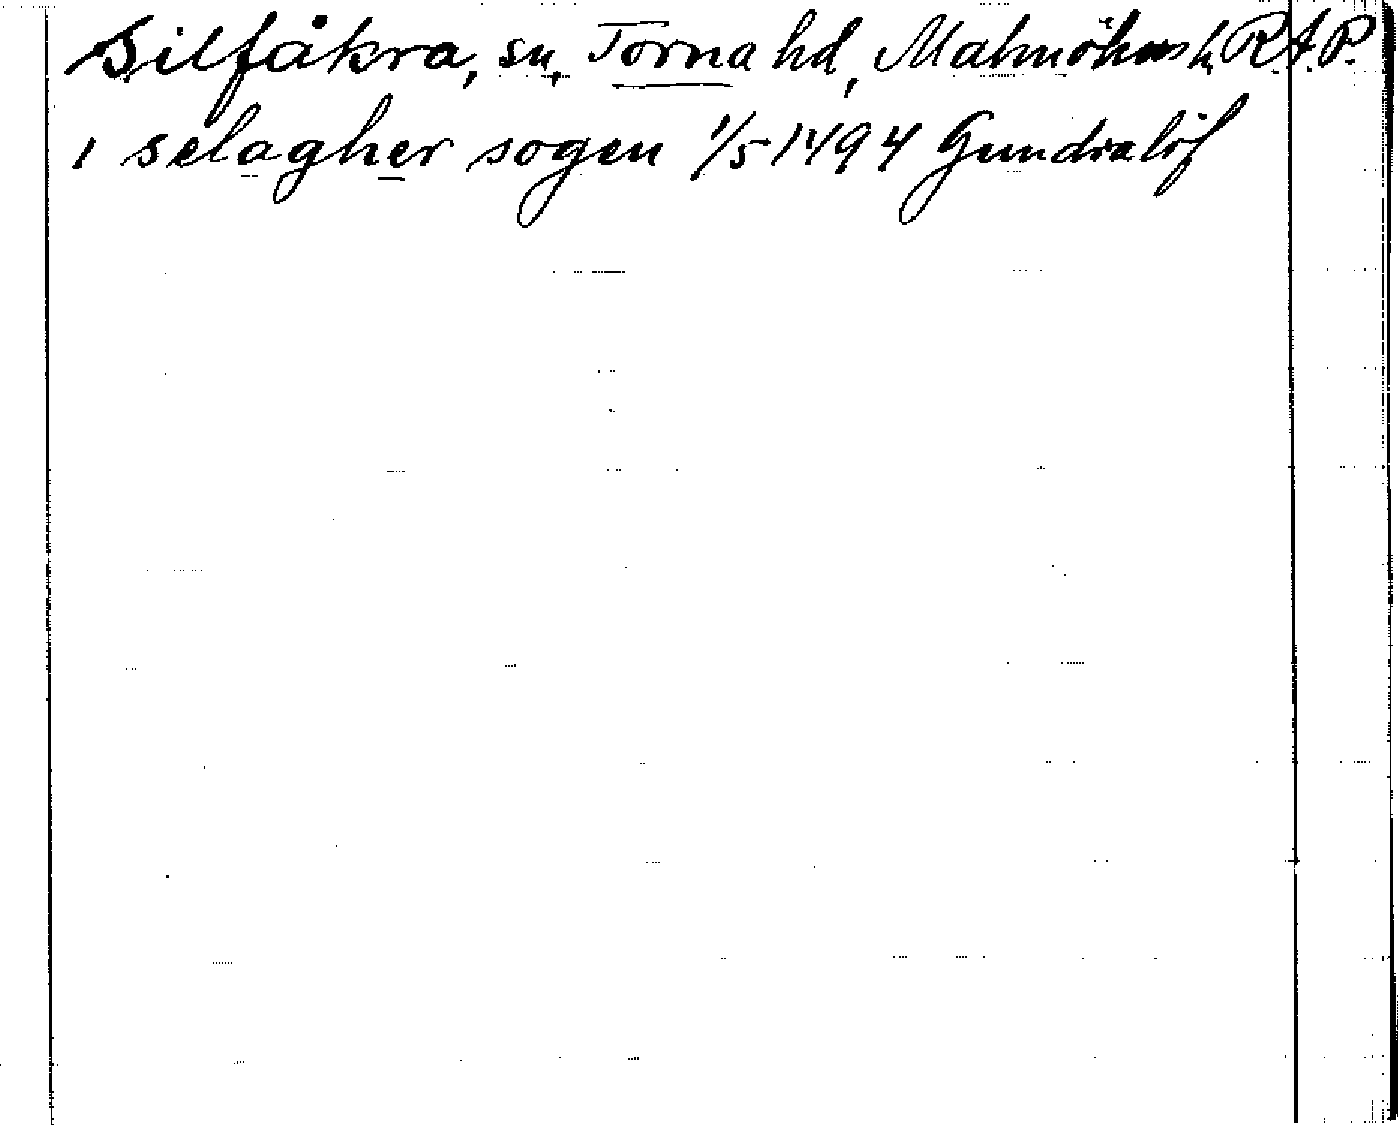 Silfåkra, sn, Torna hd, Malmöhus l. RAP.
i selagher sogen 1/5 1494 Gundralöf